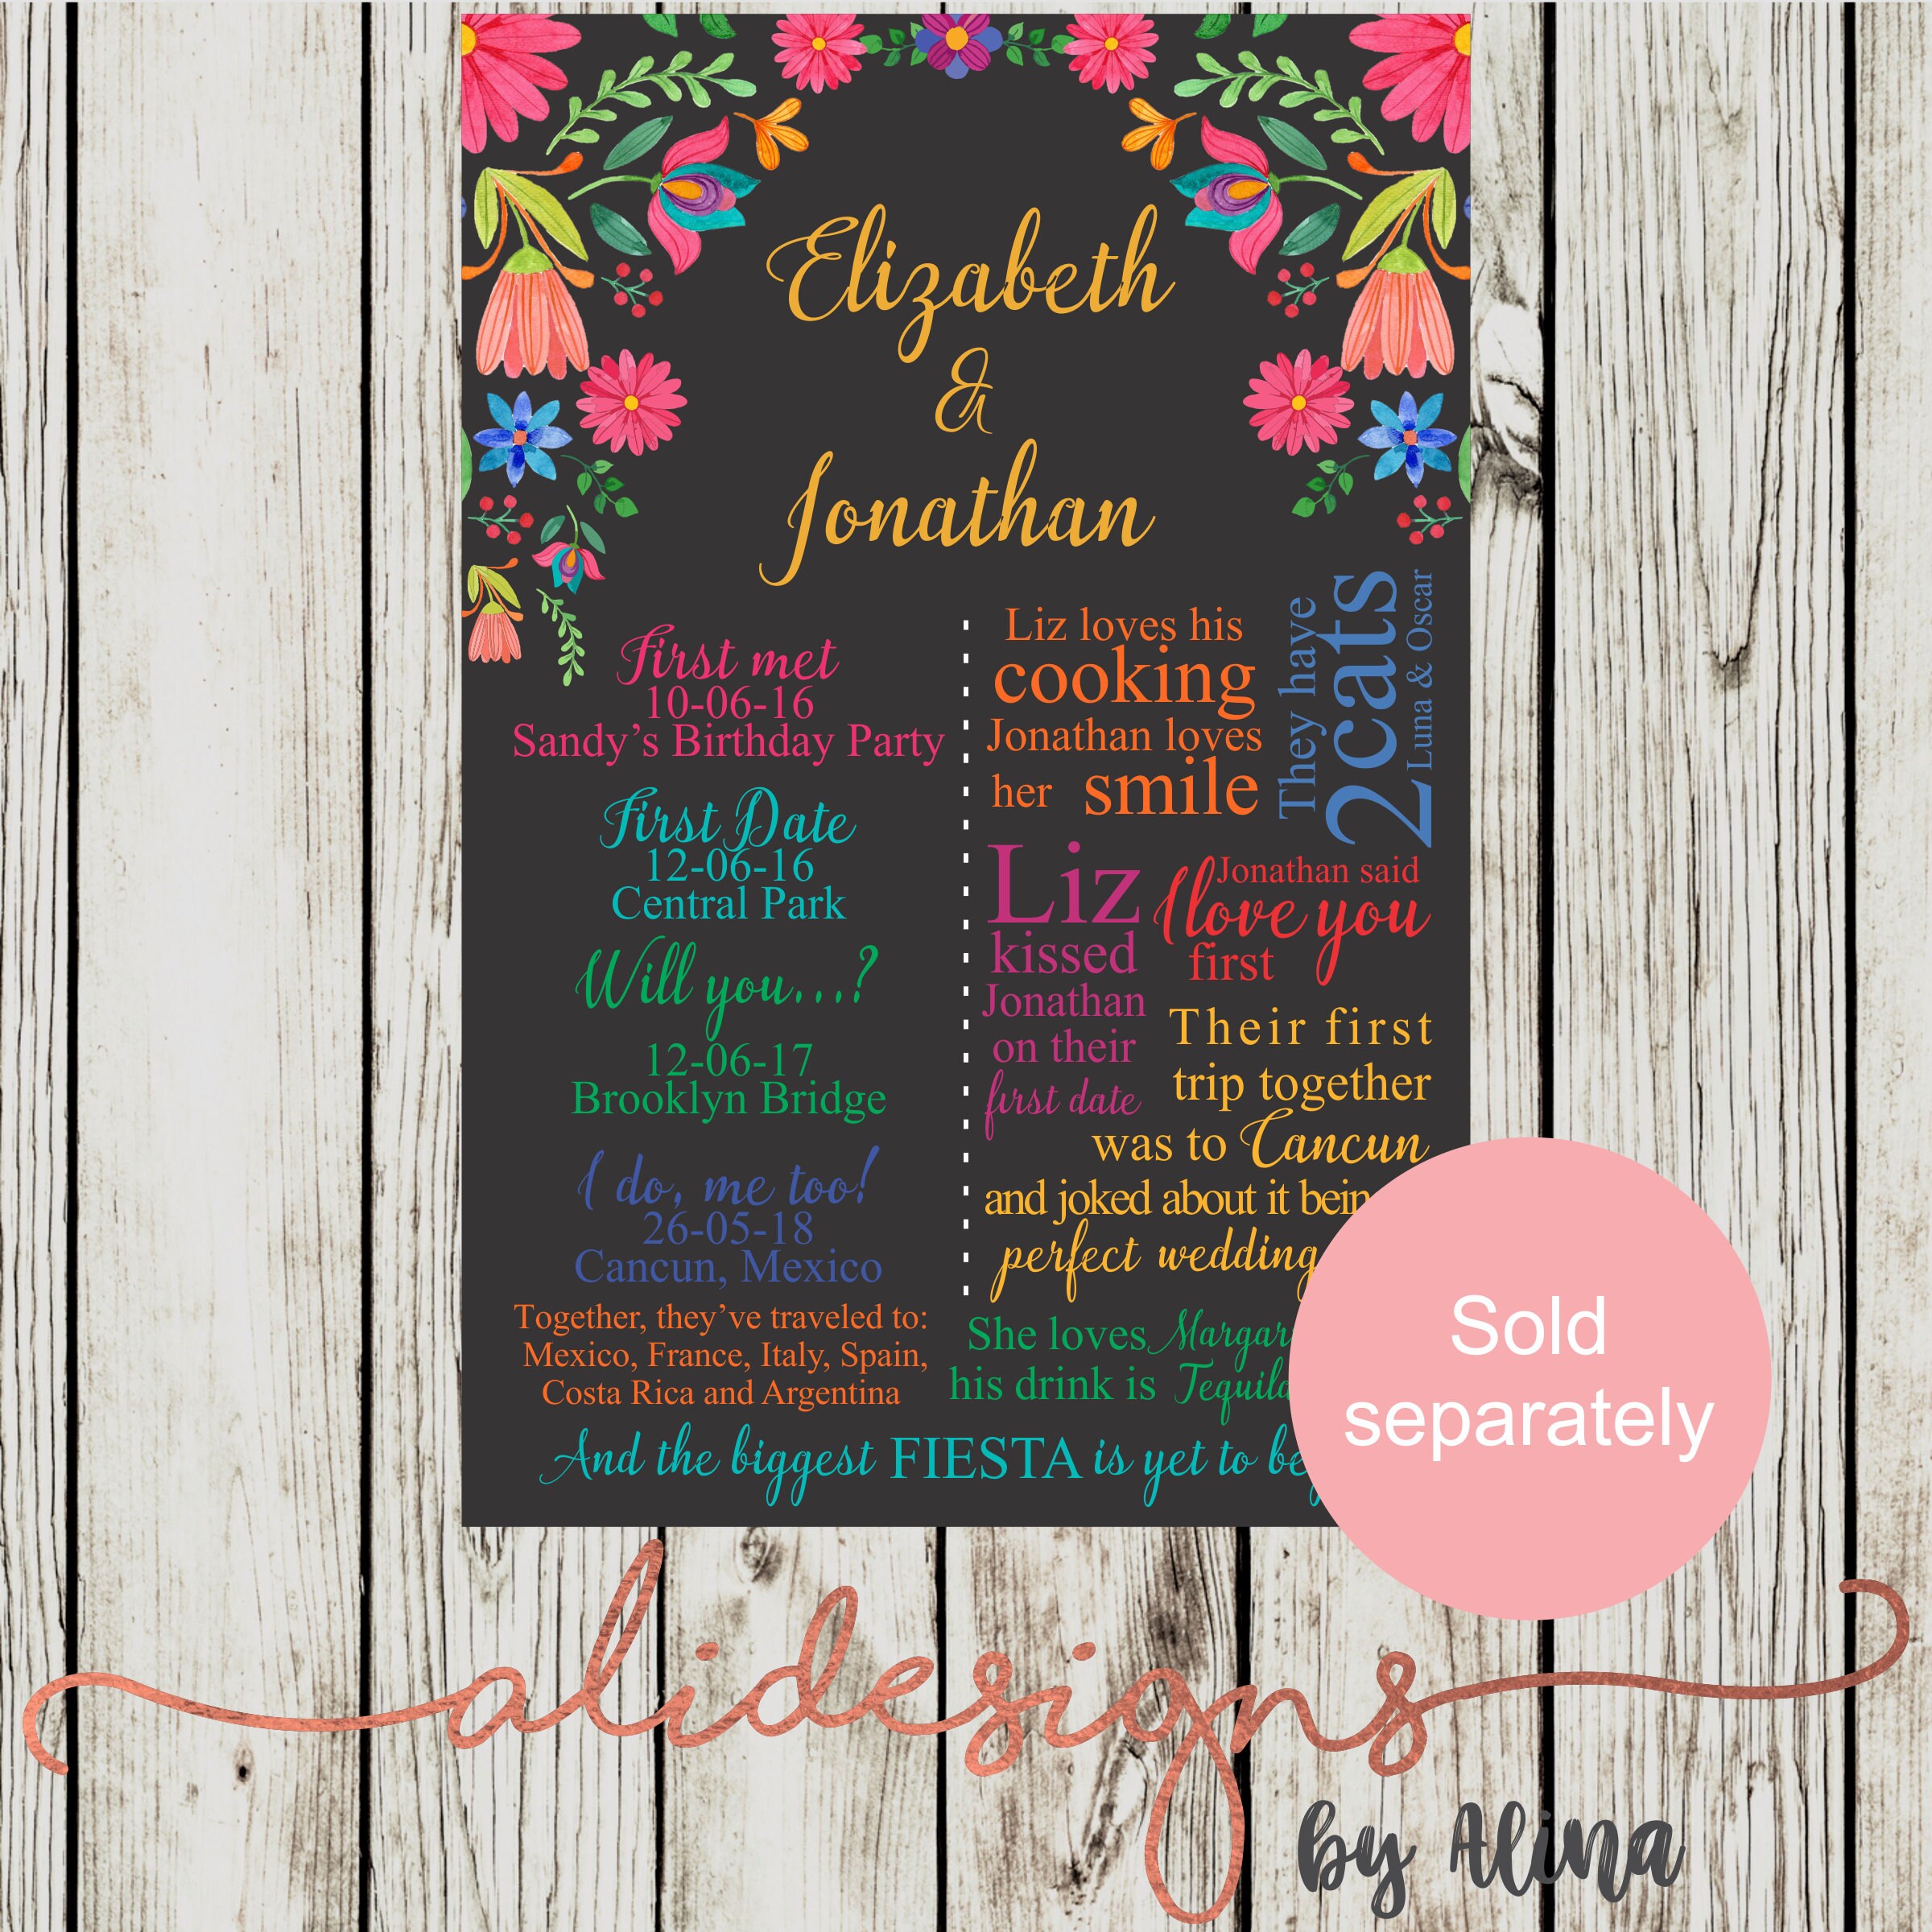 Elizabeth
&
Jonathan
First met
10-06-16
Sandy's Birthday Party
First Date
12-06-16
Central Park
Will you...?
12-06-17
Brooklyn Bridge
I do, me too!
26-05-18
Cancun, Mexico
Together, they've traveled to:
Mexico, France, Italy, Spain,
Costa Rica and Argentina
Liz loves his
cooking
Jonathan loves
her smile
They have
2cats
Luna & Oscar
Liz
kissed
Jonathan
on their
first date
Jonathan said
I love you
first
Their first
trip together
was to Cancun
and joked about it
perfect wedding
She loves
his drink is
And the biggest FIESTA is yet to
Sold
separately
alidesigns
by Alina